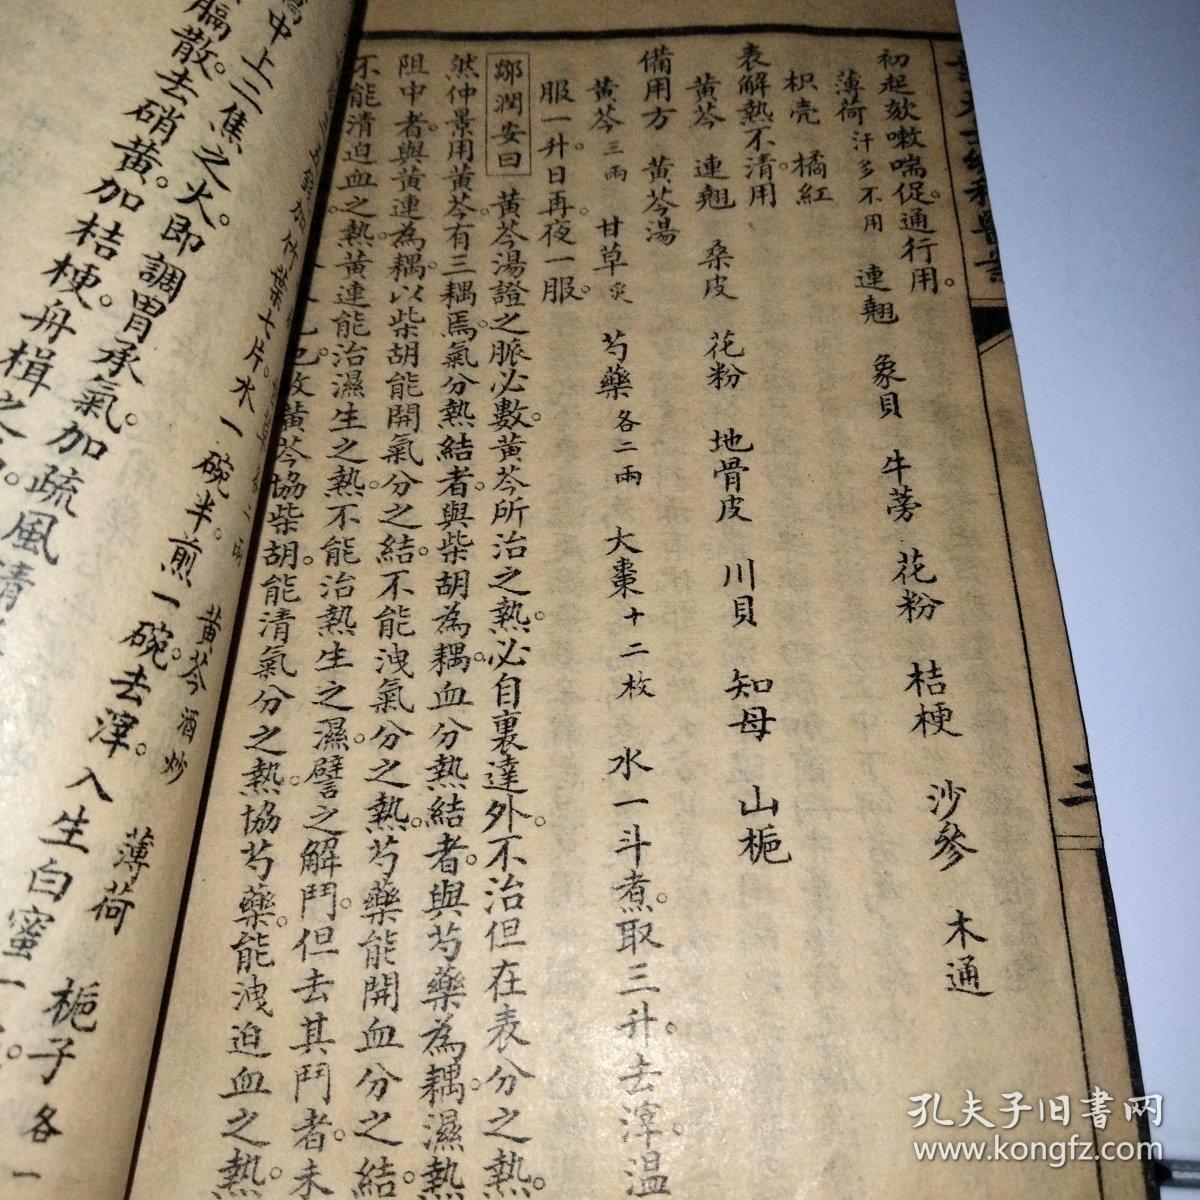 初起欬嗽喘促。通行用。
薄荷 汗多不用 連翹 象貝 牛蒡 花粉 桔梗 沙參 木通
枳壳 橘紅
表解熱不清用
黃芩 連翹 桑皮 花粉 地骨皮 川貝 知母 山梔
備用方 黃芩湯
黃芩三兩 甘草炙 芍藥各二兩 大棗十二枚 水一斗煮。取三升。去滓。温
服一升。日再。夜一服。
鄒潤安曰 黃芩湯證之脈必數。黃芩所治之熱。必自裏達外。不治但在表分之熱。
然仲景用黃芩。有三耦焉。氣分熱結者。與柴胡為耦。血分熱結者。與芍藥為耦。濕熱
阻中者。與黃連為耦。以柴胡能開氣分之結。不能洩氣分之熱。芍藥能開血分之結。
不能清迫血之熱。黃連能治濕生之熱。不能治熱生之濕。譬之解鬥。但去其鬥者。未
已。故黃芩協柴胡。能清氣分之熱。協芍藥。能洩迫血之熱。
竹葉七片。水一碗半。煎一碗。去滓。入生白蜜一
黃芩酒炒 薄荷 梔子各一
中上二焦之火。即調胃承氣。加疏風清
膈散。去硝黃。加桔梗。舟楫之
孔夫子旧書网
www.kongfz.com